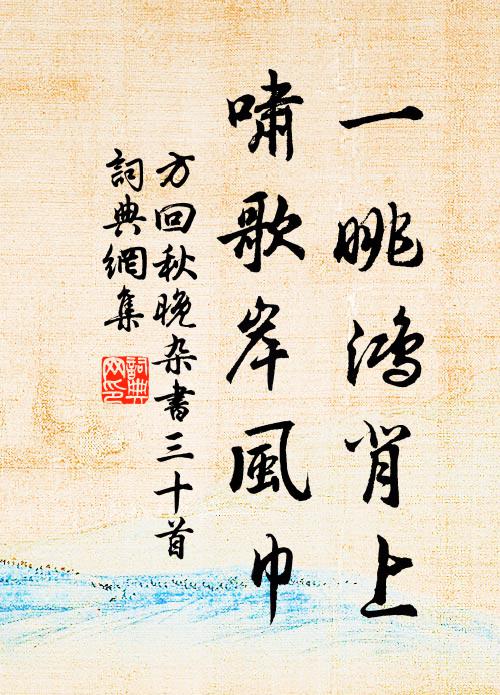 一眺鴻背上
嘯歌岸風巾
方回秋晚杂書三十首
詞典網集
詞典网印